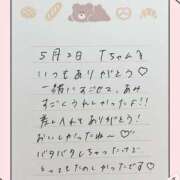 5月2日 Tちゃん
いつもありがとう♡
一緒にすごせて、
すごくうれしかったよ!!
差し入れもありがとう!
おいしかったね〜♡
バタバタしちゃったけど
とってもたのしかったです♡